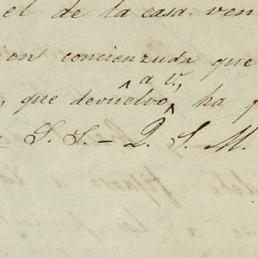 el de la casa ven
ion concienzuda que
a V.,
, que devuelvo, ha
S. S. - Q. S. M.